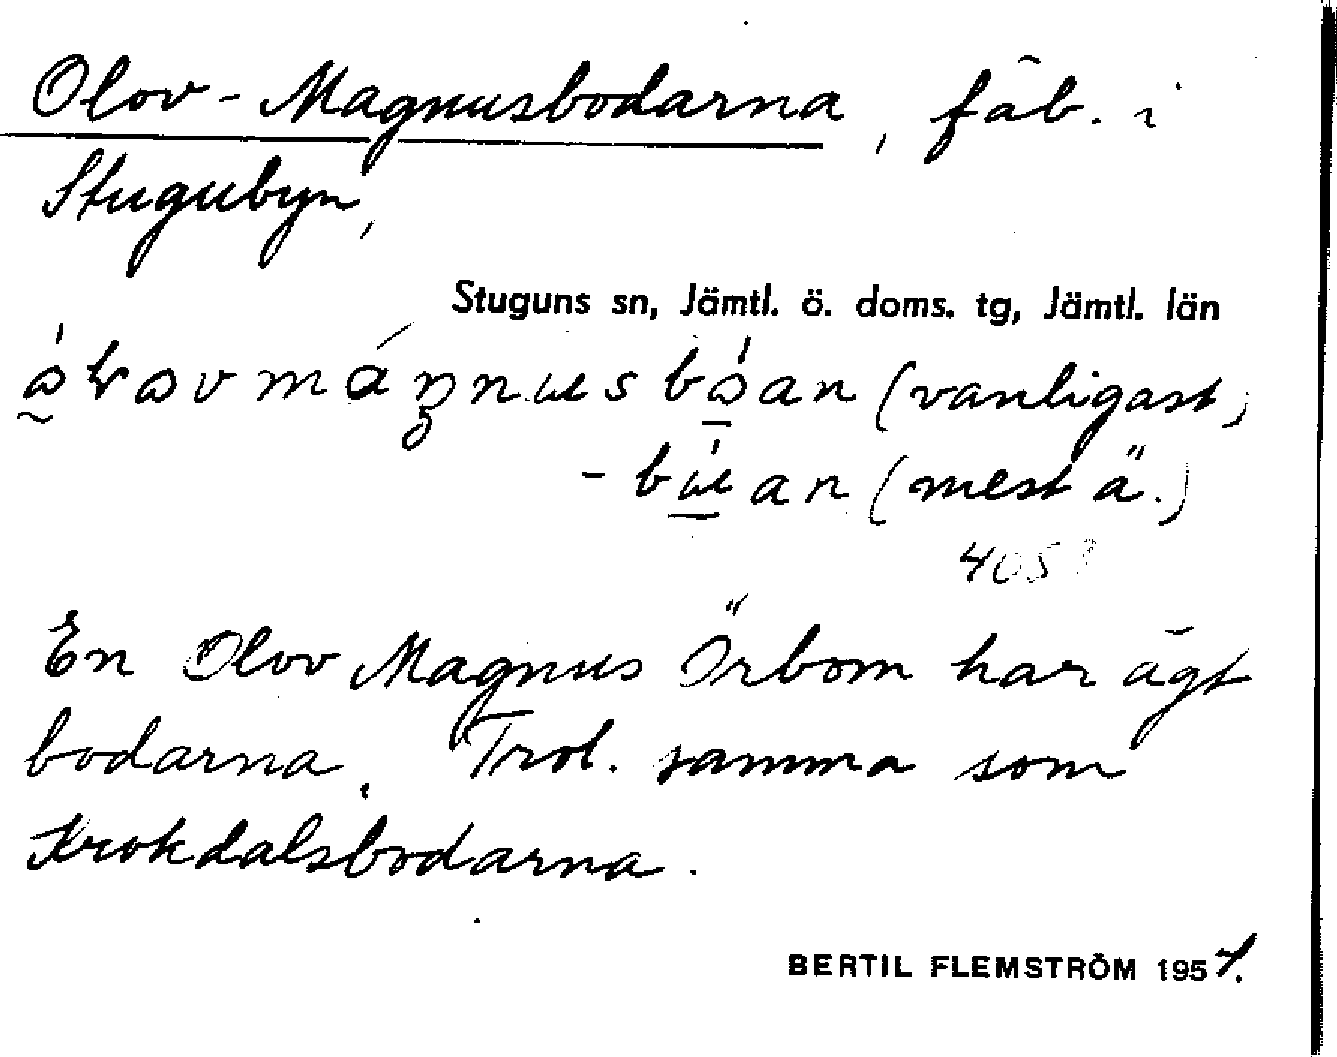 Olov-Magnusbodarna, fäb. i
Stugubyn,
Stuguns sn, Jämtl. ö. doms. tg, Jämtl. län
(vanligast)
(mest ä.)
En Olov Magnus Örbom har ägt
bodarna. Trol. samma som
Krokdalsbodarna.
BERTIL FLEMSTRÖM 195